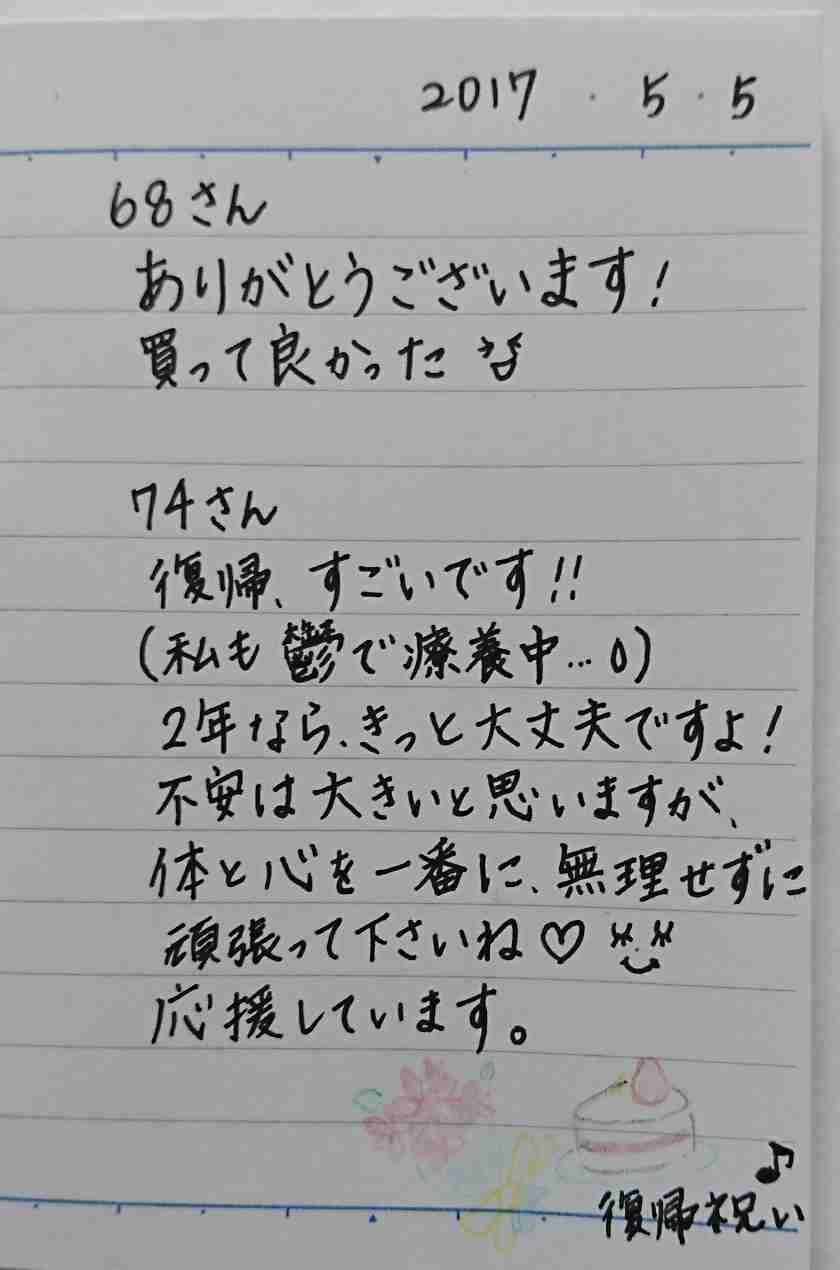 2017 . 5 . 5
68さん
ありがとうございます!
買って良かった
74さん
復帰、すごいです!!
(私も鬱で療養中…0)
2年なら、きっと大丈夫ですよ!
不安は大きいと思いますが、
体と心を一番に、無理せずに
頑張って下さいね♡
応援しています。
♪
復帰祝い